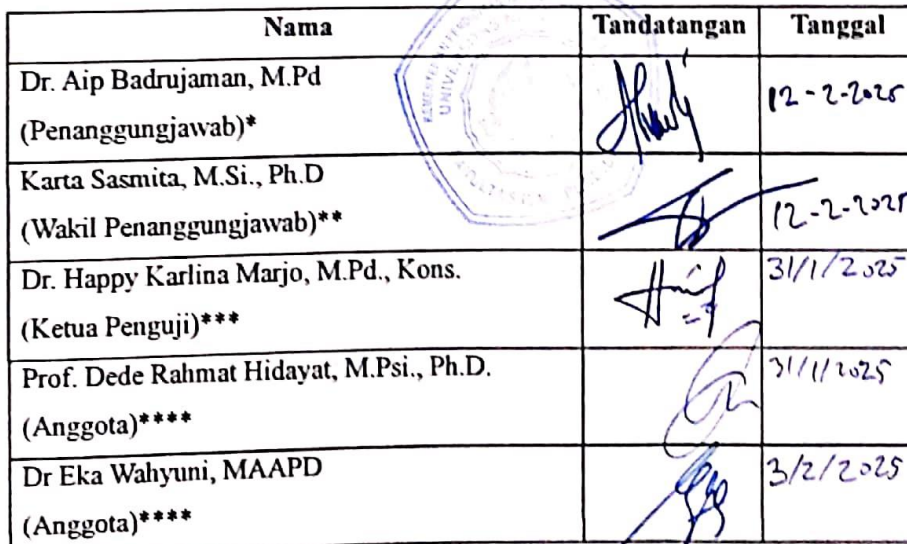 Nama Tandatangan Tanggal
Dr. Aip Badrujaman, M.Pd
(Penanggungjawab)* 12-2-2025
Karta Sasmita, M.Si., Ph.D
(Wakil Penanggungjawab)** 12-2-2025
Dr. Happy Karlina Marjo, M.Pd., Kons.
(Ketua Penguji)*** 31/1/2025
Prof. Dede Rahmat Hidayat, M.Psi., Ph.D.
(Anggota)**** 31/1/2025
Dr Eka Wahyuni, MAAPD
(Anggota)**** 3/2/2025